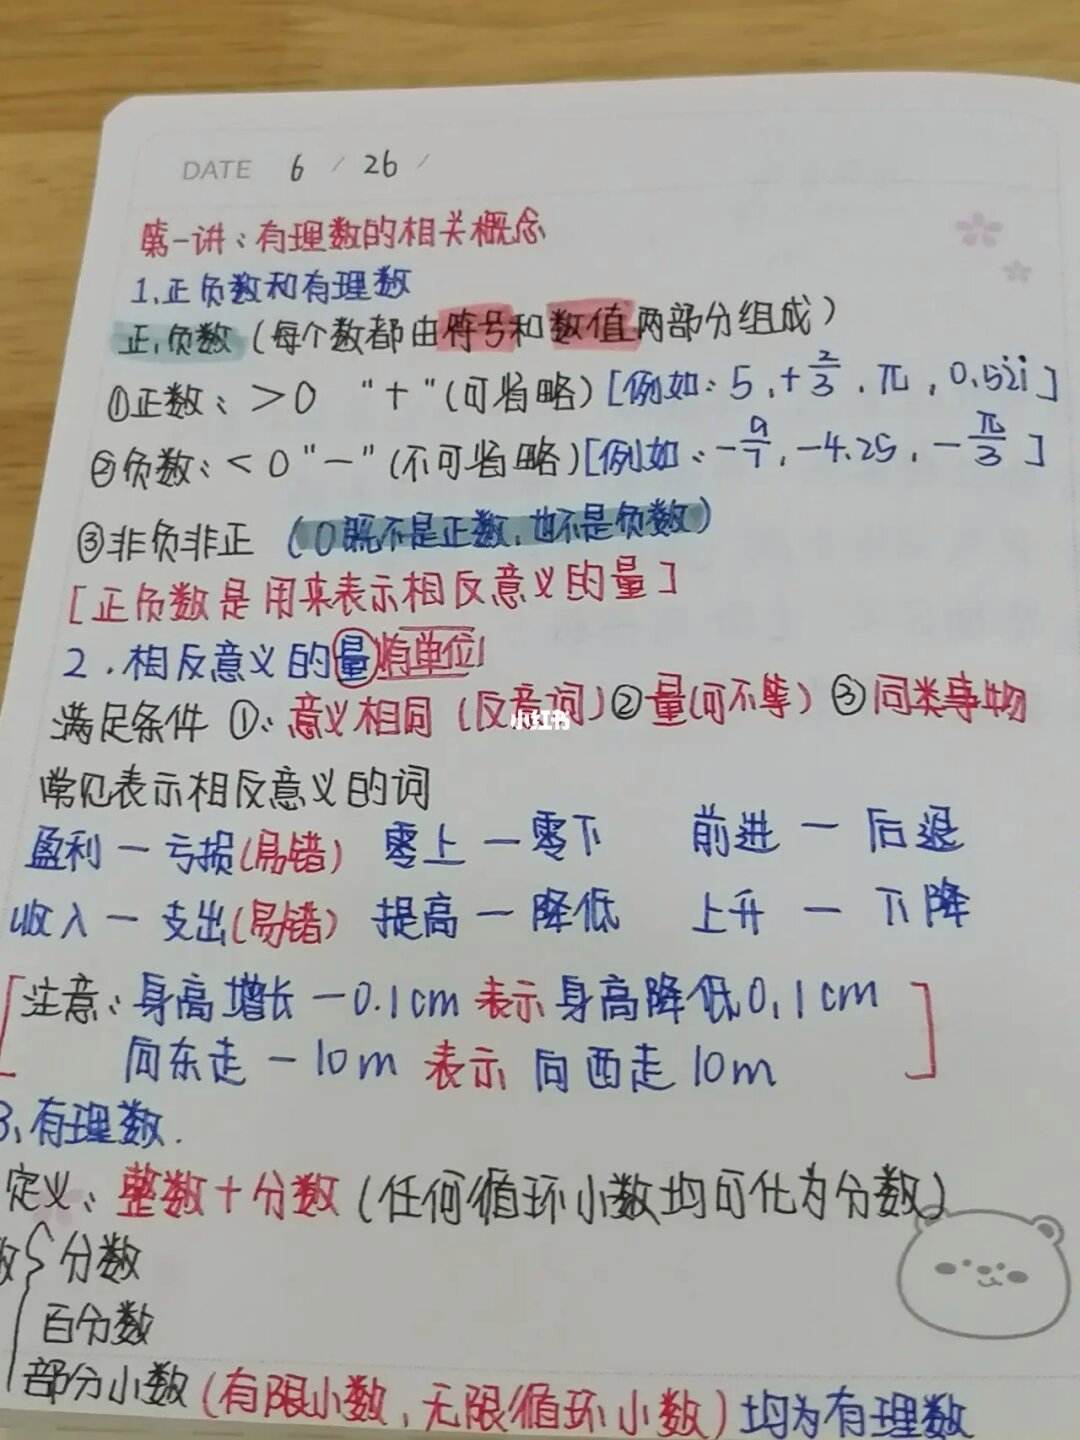 DATE 6 / 26 /
第一讲：有理数的相关概念
1.正负数和有理数
正,负数（每个数都由符号和数值两部分组成）
①正数：＞0 "＋"(可省略)[例如：5，+2/3，π，0.5̇2̇1̇]
②负数：＜0"－"(不可省略)[例如：-9/7，-4.25，-π/3]
③非负非正（0既不是正数,也不是负数）
[正负数是用来表示相反意义的量]
2.相反意义的量(有单位)
满足条件①：意义相同（反意词）②量(可不等）③同类事物
小红书
常见表示相反意义的词
盈利－亏损(易错） 零上－零下 前进－后退
收入－支出(易错） 提高－降低 上升－下降
[注意：身高增长－0.1cm 表示 身高降低0.1cm
向东走－10m 表示 向西走10m]
3、有理数.
定义：整数＋分数（任何循环小数均可化为分数）
数{分数
百分数
部分小数（有限小数,无限循环小数）均为有理数